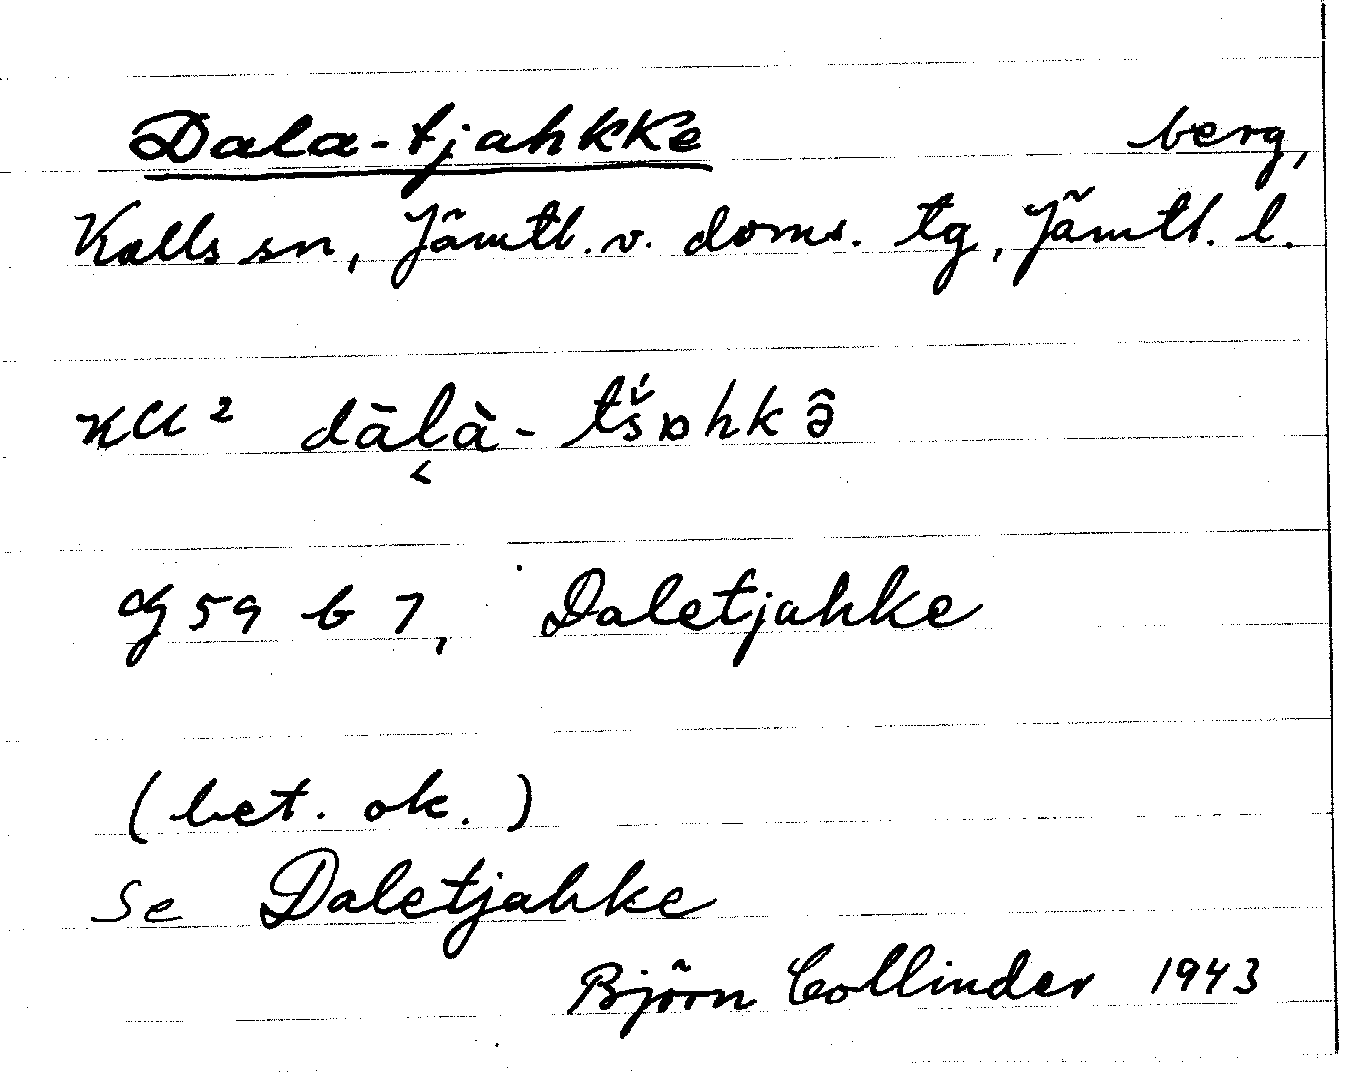 Dala-tjahkke berg,
Kalls sn, Jämtl. v. doms. tg, Jämtl. l.
KCl² dāl̬à- tš́ɒhkə̂
Cg 59 b 7, Daletjahke
(bet. ok.)
Se Daletjahke
Björn Collinder 1943